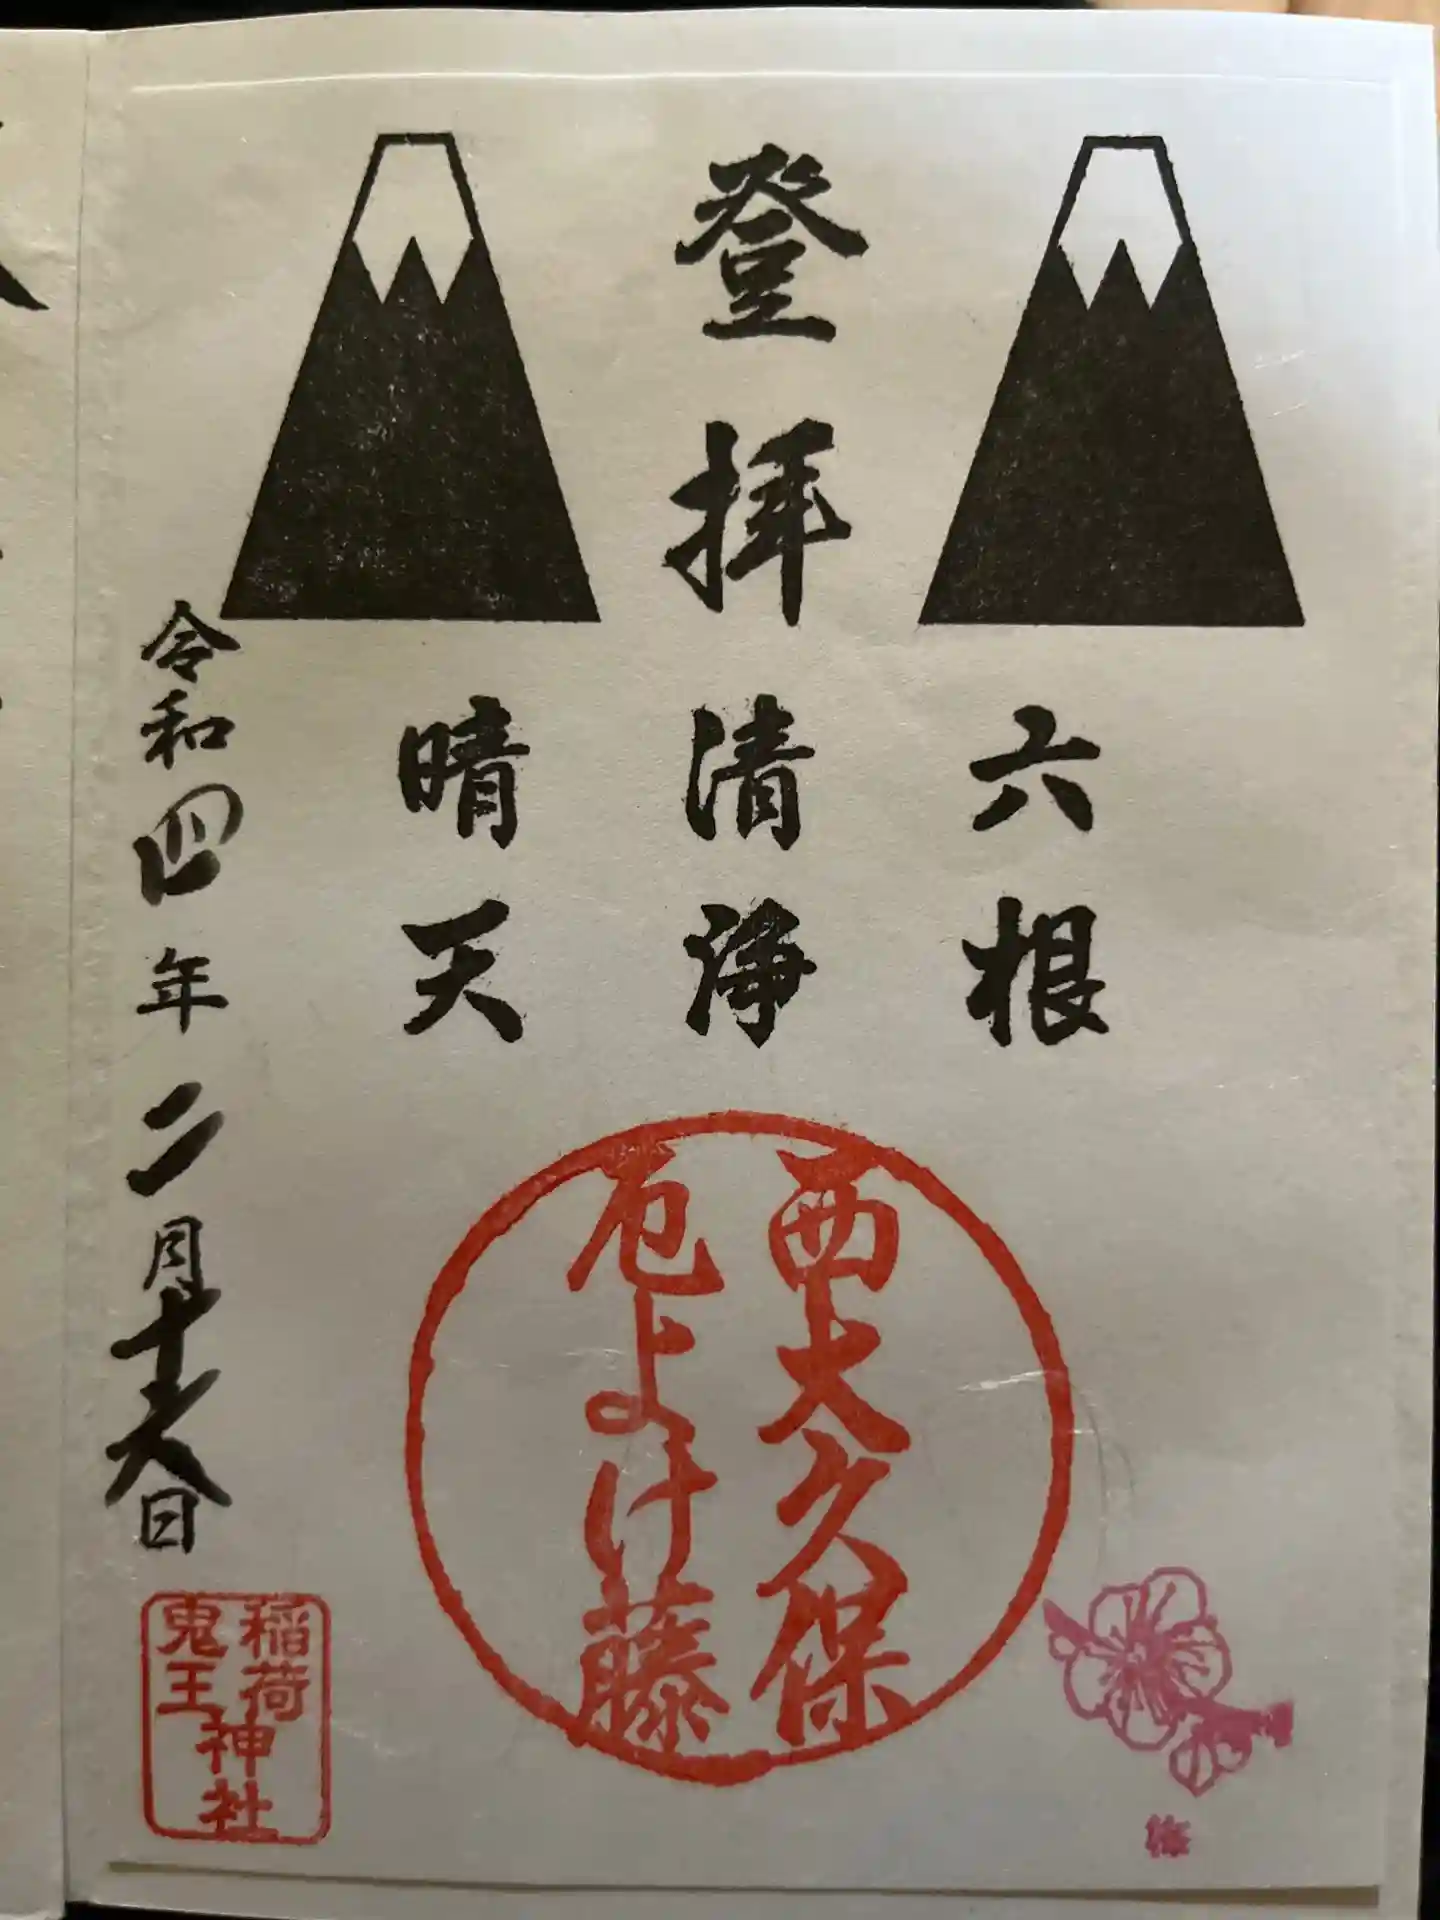 登拝
六根
清浄
晴天
令和四年二月十六日
西大久保
厄よけ藤
稲荷
鬼王
神社
梅